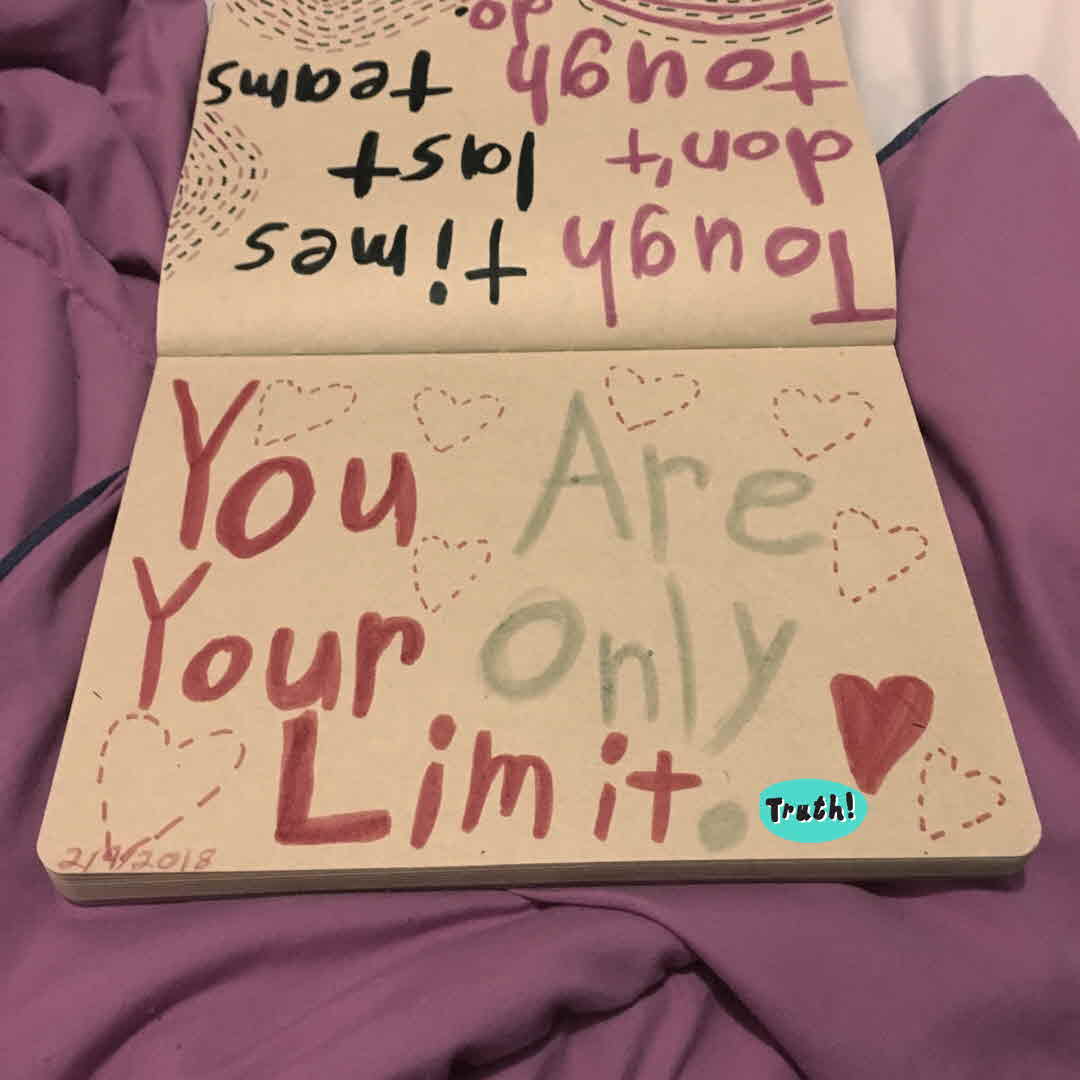 Tough times
don't last
tough teams
do.
You Are
Your Only
Limit.
Truth!